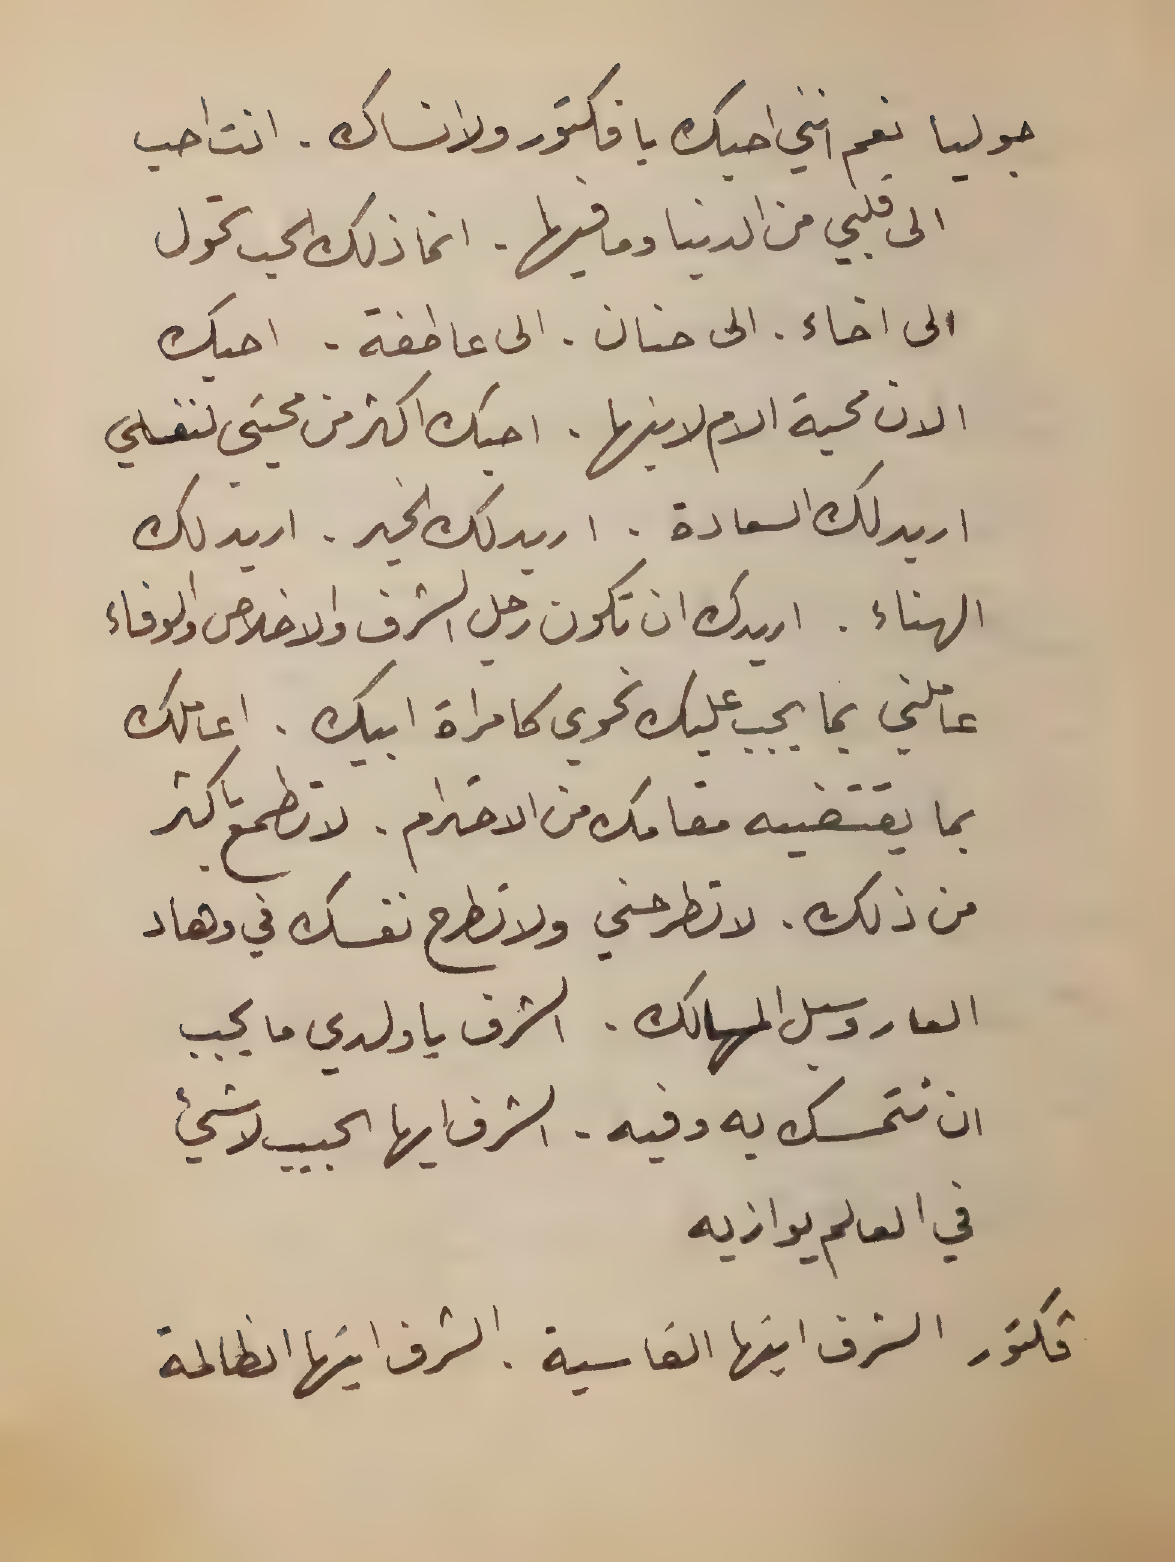 جوليا نعم انني احبك يا فكتور ولا انساك . انت احب
الى قلبي من الدنيا وما فيها . انما ذلك الحب تحول
الى اخاء . الى حنان . الى عاطفة . احبك
الان محبة الام لابنها . احبك اكثر من محبتي لنفسي
اريد لك السعادة . اريد لك الخير . اريد لك
الهناء . اريدك ان تكون رجل الشرف والاخلاص والوفاء
عاملني بما يجب عليك نحوي كامراة ابيك . اعاملك
بما يقتضيه مقامك من الاحترام . لا تطمع باكثر
من ذلك . لا تطرحني ولا تطرح نفسك في وهاد
العار وسبل المهالك . الشرف يا ولدي ما يجب
ان نتمسك به وفيه . الشرف ايها الحبيب لا شيئ
في العالم يوازيه
فكتور الشرف ايتها القاسية . الشرف ايتها الظالمة